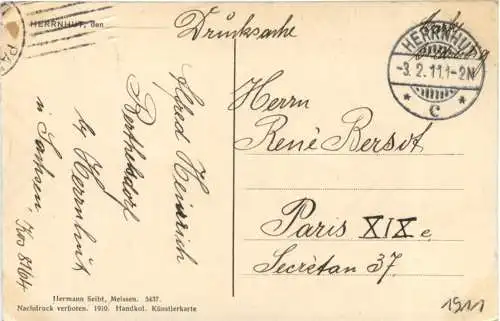 HERRNHUT, den
PA
Drucksache
HERRNHUT
-3.2.11.1-2N
* c *
Herrn
René Bersot
Paris XIXe
Secrétan 37.
Alfred Heinrich
Berthelsdorf
by Herrnhut
in Sachsen
Kos 8164
Hermann Seibt, Meissen. 5437.
Nachdruck verboten. 1910. Handkol. Künstlerkarte
1911